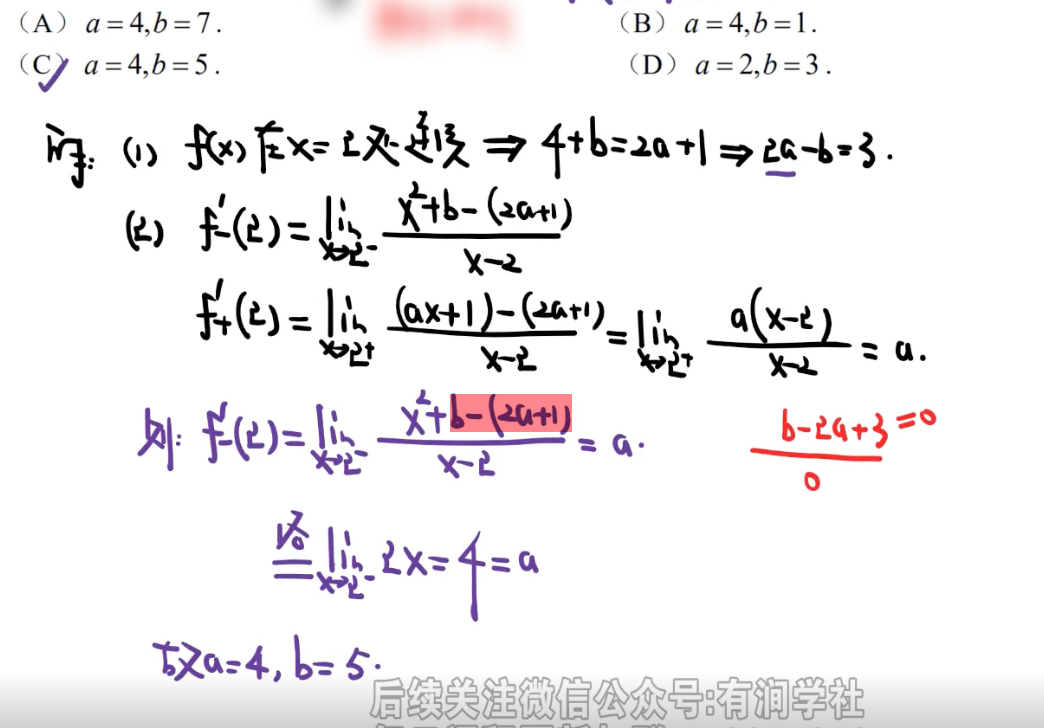 (A) a=4,b=7. (B) a=4,b=1.
(C) a=4,b=5. (D) a=2,b=3.
解: (1) f(x)在x=2处连续 ⇒ 4+b=2a+1 ⇒ 2a-b=3.
(2) f'₋(2)=lim_{x→2⁻} (x²+b-(2a+1))/(x-2)
f'₊(2)=lim_{x→2⁺} ((ax+1)-(2a+1))/(x-2) = lim_{x→2⁺} a(x-2)/(x-2) = a.
则: f'₋(2)=lim_{x→2⁻} (x²+b-(2a+1))/(x-2) = a. (b-2a+3=0)/0
洛 lim_{x→2⁻} 2x=4=a
故a=4, b=5.
后续关注微信公众号:有润学社